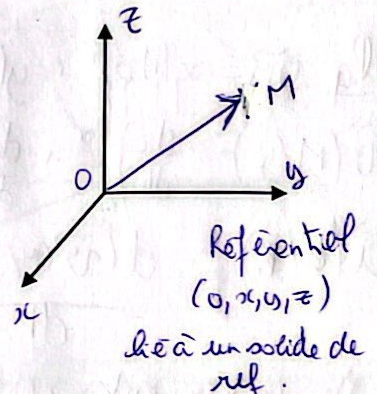 z
M
O
y
x
Référentiel
(o,x,y,z)
lié à un solide de
ref.